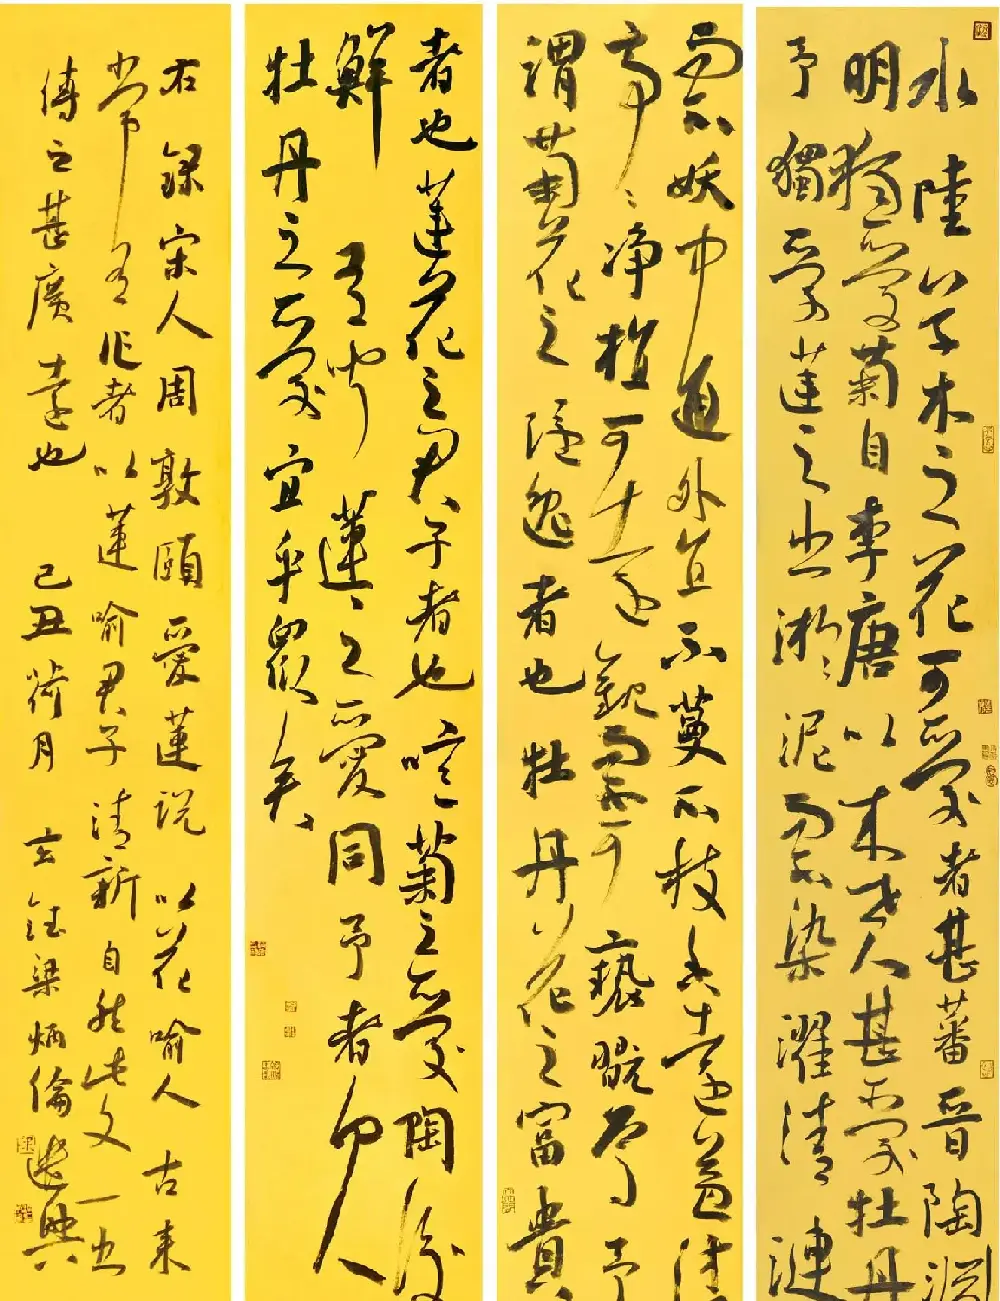 水陸草木之花可愛者甚蕃晉陶淵
明獨愛菊自李唐以来世人甚愛牡丹
予獨愛蓮之出淤泥而不染濯清漣
而不妖中通外直不蔓不枝香遠益清
亭〻净植可遠觀而不可褻翫焉予
謂菊花之隱逸者也牡丹花之富貴
者也蓮花之君子者也噫菊之愛陶後
鮮有聞蓮之愛同予者何人
牡丹之愛宜乎眾矣
右錄宋人周敦頤愛蓮説以花喻人古来
常有作者以蓮喻君子清新自然此文一出
傳之甚廣遠也 己丑荷月 梁炳倫逸興